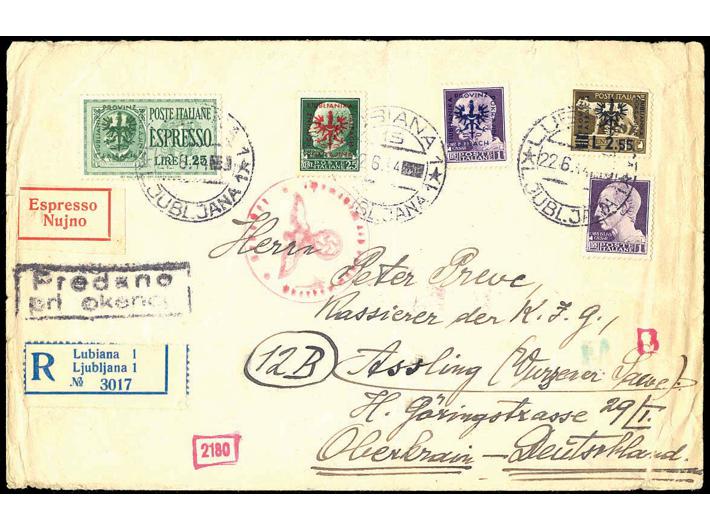 POSTE ITALIANE
ESPRESSO
LIRE 1.25
PROVINZ
25
1
POSTE ITALIANE
L. 2.55
POSTE ITALIANE
1
LUBIANA
15
LJUBLJANA 1
22.6.44
LJUBLJANA 1
Espresso
Nujno
Predano
pri okencu
R
Lubiana 1
Ljubljana 1
№ 3017
Herrn
Peter Prevc,
Kassierer der K.F.G.,
12B
Assling (Wurzener Save)
H. Göringstrasse 29/I.
Oberkrain – Deutschland.
2180